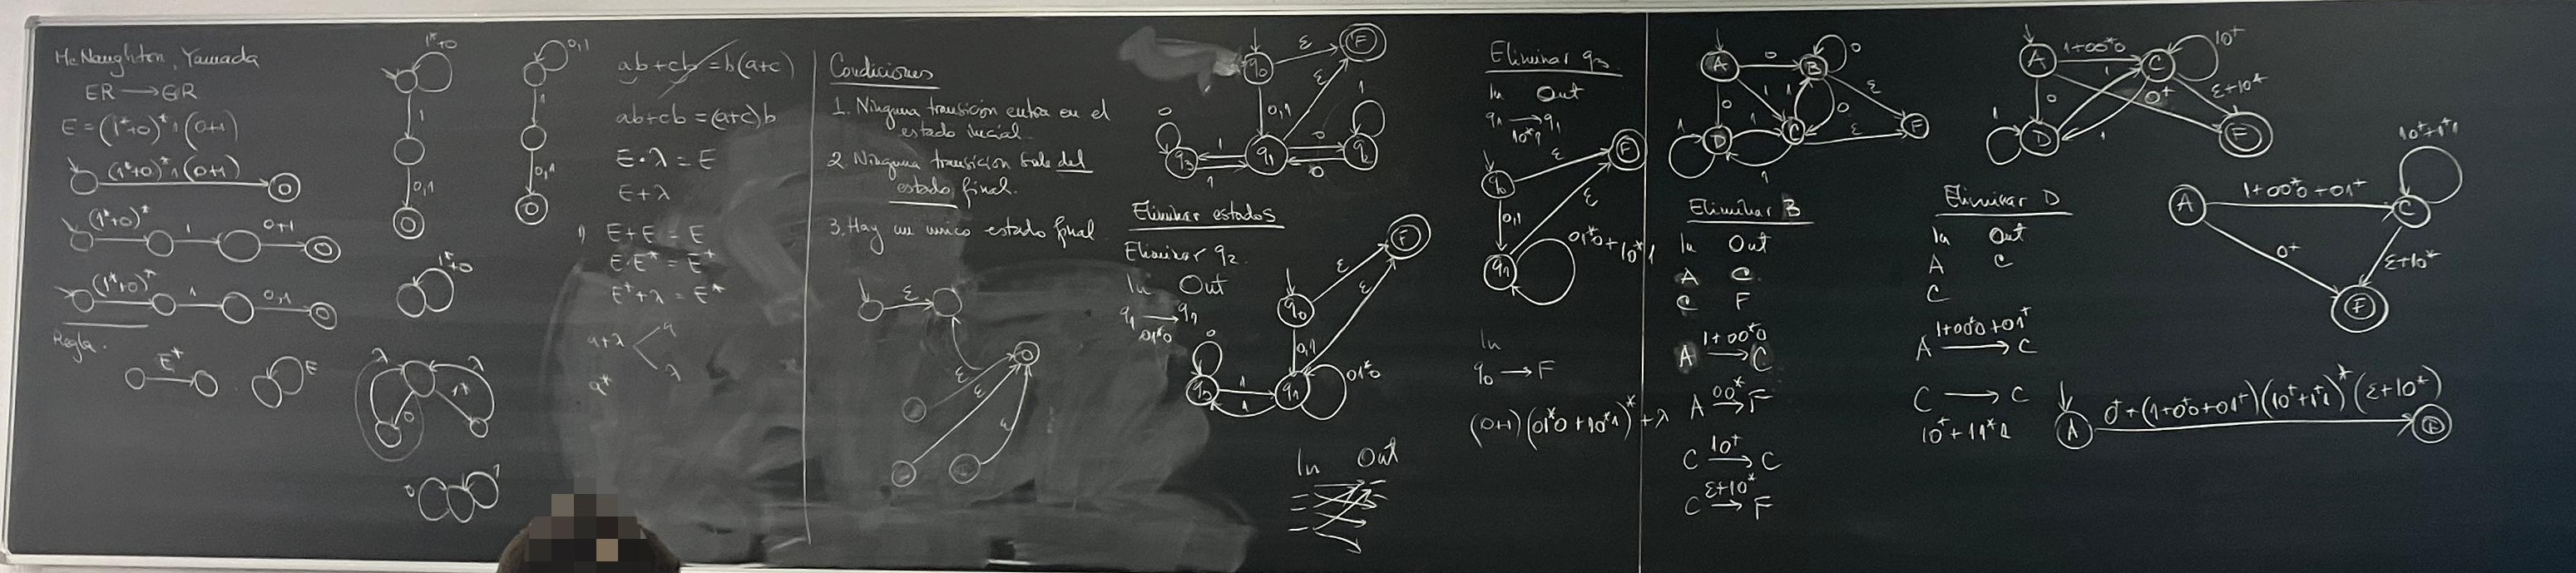 McNaughton, Yamada
ER → GR
E = (1*+0)*1(0+1)
(1*+0)*1(0+1)
(1*+0)*
1
0+1
(1*+0)*
1
0,1
Regla.
E*
E
1*+0
1
0,1
0,1
1
0,1
1*+0
λ
λ
0
1*
0
1
ab+cb = b(a+c)
ab+cb = (a+c)b
E·λ = E
E+λ
E+E = E
E·E* = E⁺
E⁺+λ = E*
a+λ
a
λ
a*
Condiciones
1. Ninguna transición entra en el
estado inicial.
2. Ninguna transición sale del
estado final.
3. Hay un unico estado final
ε
ε
ε
ε
q0
ε
F
0,1
ε
0
q3
1
1
q1
0
0
q2
1
Eliminar estados
Eliminar q2
In Out
q1 → q1
01*0
q0
ε
F
0,1
ε
0
q3
1
1
q1
01*0
In Out
Eliminar q3
In Out
q1 → q1
10*1
q0
ε
F
0,1
ε
q1
01*0+10*1
In
q0 → F
(0+1)(01*0+10*1)*+λ
A
0
B
0
ε
0
1
1
0
1
D
1
C
ε
F
1
Eliminar B
In Out
A C
C F
1+00*0
A → C
00*
A → F
10⁺
C → C
ε+10*
C → F
A
1+00*0
C
10⁺
1
0
0⁺
ε+10*
1
D
1
F
Eliminar D
In Out
A C
C
1+00*0+01⁺
A → C
C → C
10⁺+11*1
10⁺+1⁺1
A
1+00*0+01⁺
C
0⁺
ε+10*
F
A
0⁺+(1+0⁺0+01⁺)(10⁺+1⁺1)*(ε+10*)
F